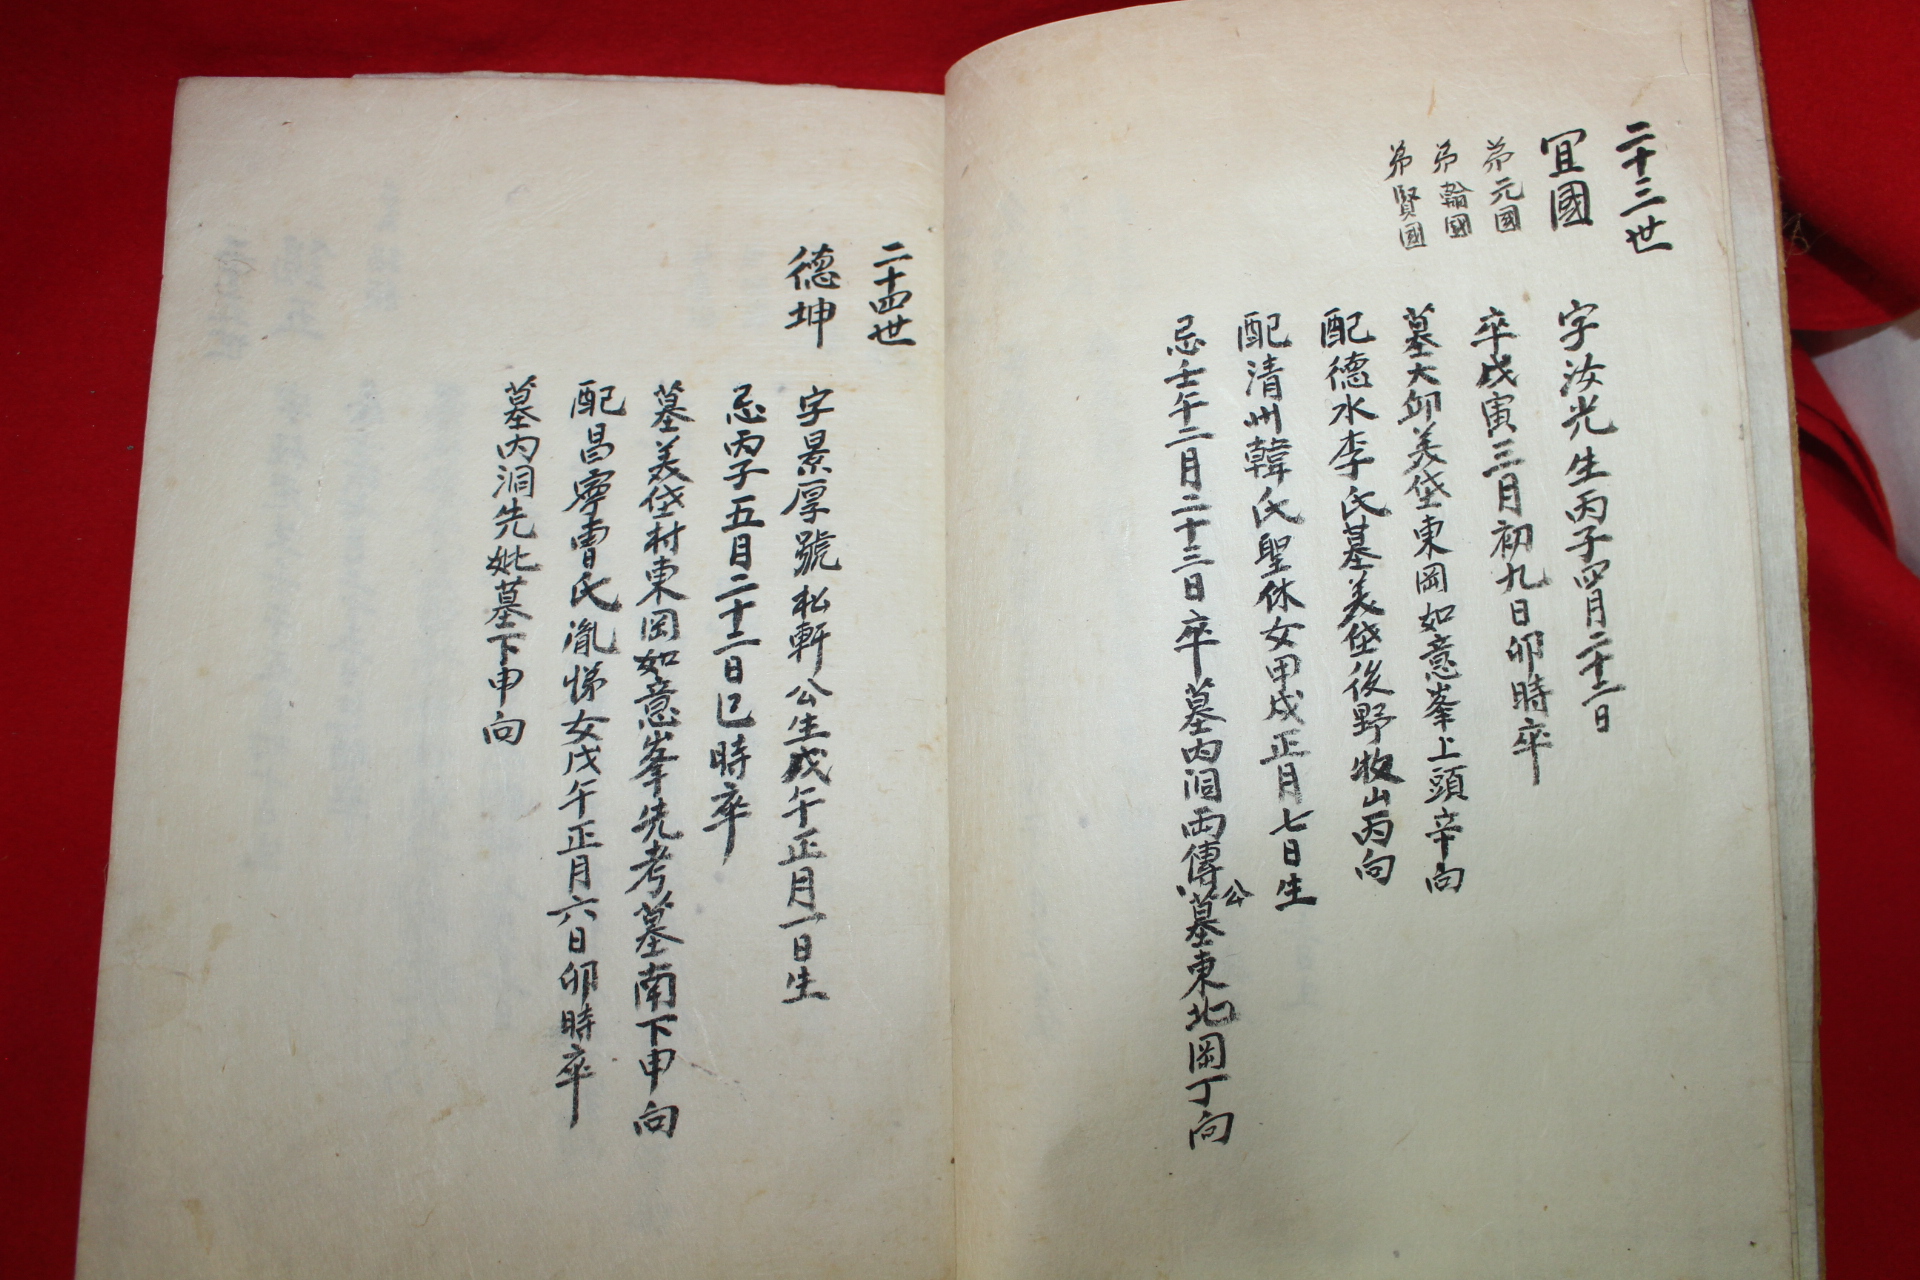 二十三世
宜國
弟元國
弟輪國
弟賢國
字汝光生丙子四月二十二日
卒戊寅三月初九日卯時卒
墓大卯美垈東岡如意峯上頭辛向
配德水李氏墓美垈後野牧山丙向
配清州韓氏聖休女甲戌正月七日生
忌壬午二月二十三日卒墓內洞兩傳公墓東北岡丁向
二十四世
德坤
字景厚號松軒公生戊午正月一日生
忌丙子五月二十二日巳時卒
墓美垈村東岡如意峯先考墓南下申向
配昌寧曺氏胤悌女戊午正月六日卯時卒
墓內洞先妣墓下申向